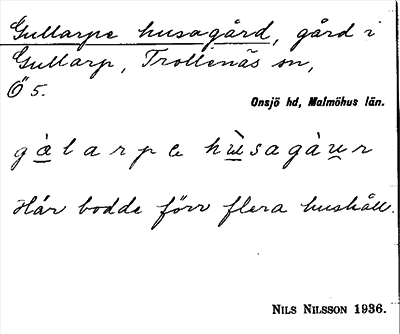 Gullarps husagård, gård i
Gullarp, Trollenäs sn,
Ö 5.
Onsjö hd, Malmöhus län.
gàlarps hùsagàur
Här bodde förr flera hushåll.
NILS NILSSON 1936.